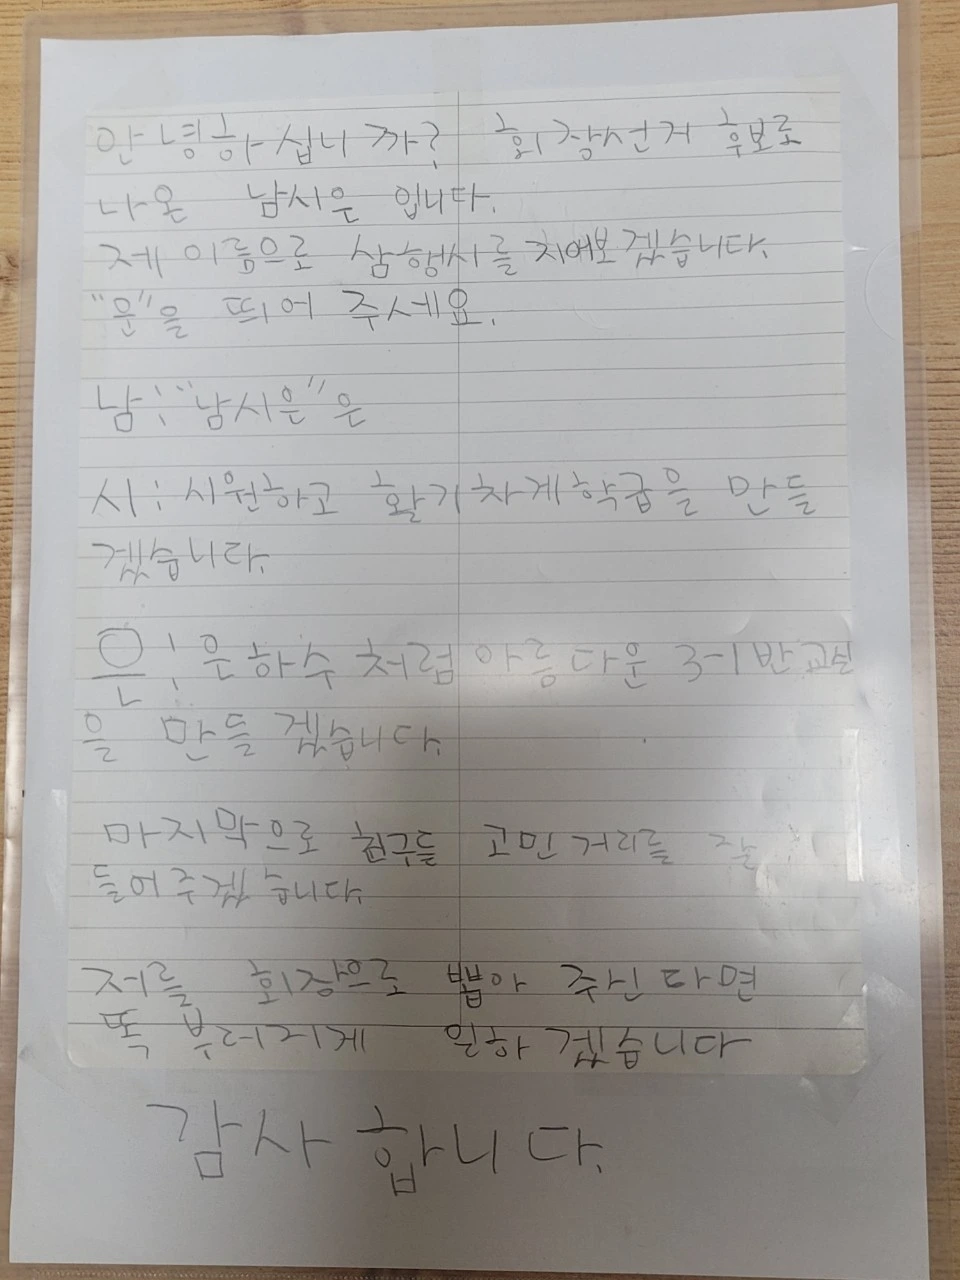 안녕하십니까? 회장선거 후보로
나온 남시은 입니다.
제 이름으로 삼행시를 지어보겠습니다.
"운"을 띄어 주세요.
남:"남시은"은
시:시원하고 활기차게학급을 만들
겠습니다.
은:은하수 처럼 아름다운 3-1반교실
을 만들겠습니다.
마지막으로 친구들 고민거리를 잘
들어주겠습니다.
저를 회장으로 뽑아 주신다면
똑 부러지게 일하겠습니다
감사합니다.